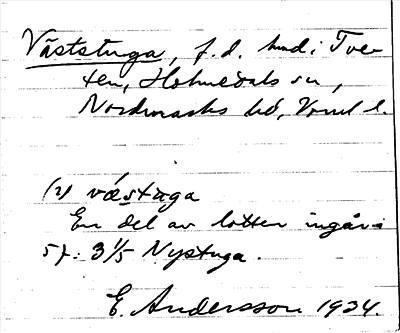 Väststuga, f.d. hmd i Tver-
ten, Holmedals sn,
Nordmarks hd, Vrml l.
(2) vä́stuga
En del av lotten ingår i
5/: 3 1/5 Nystuga.
E. Andersson 1934.